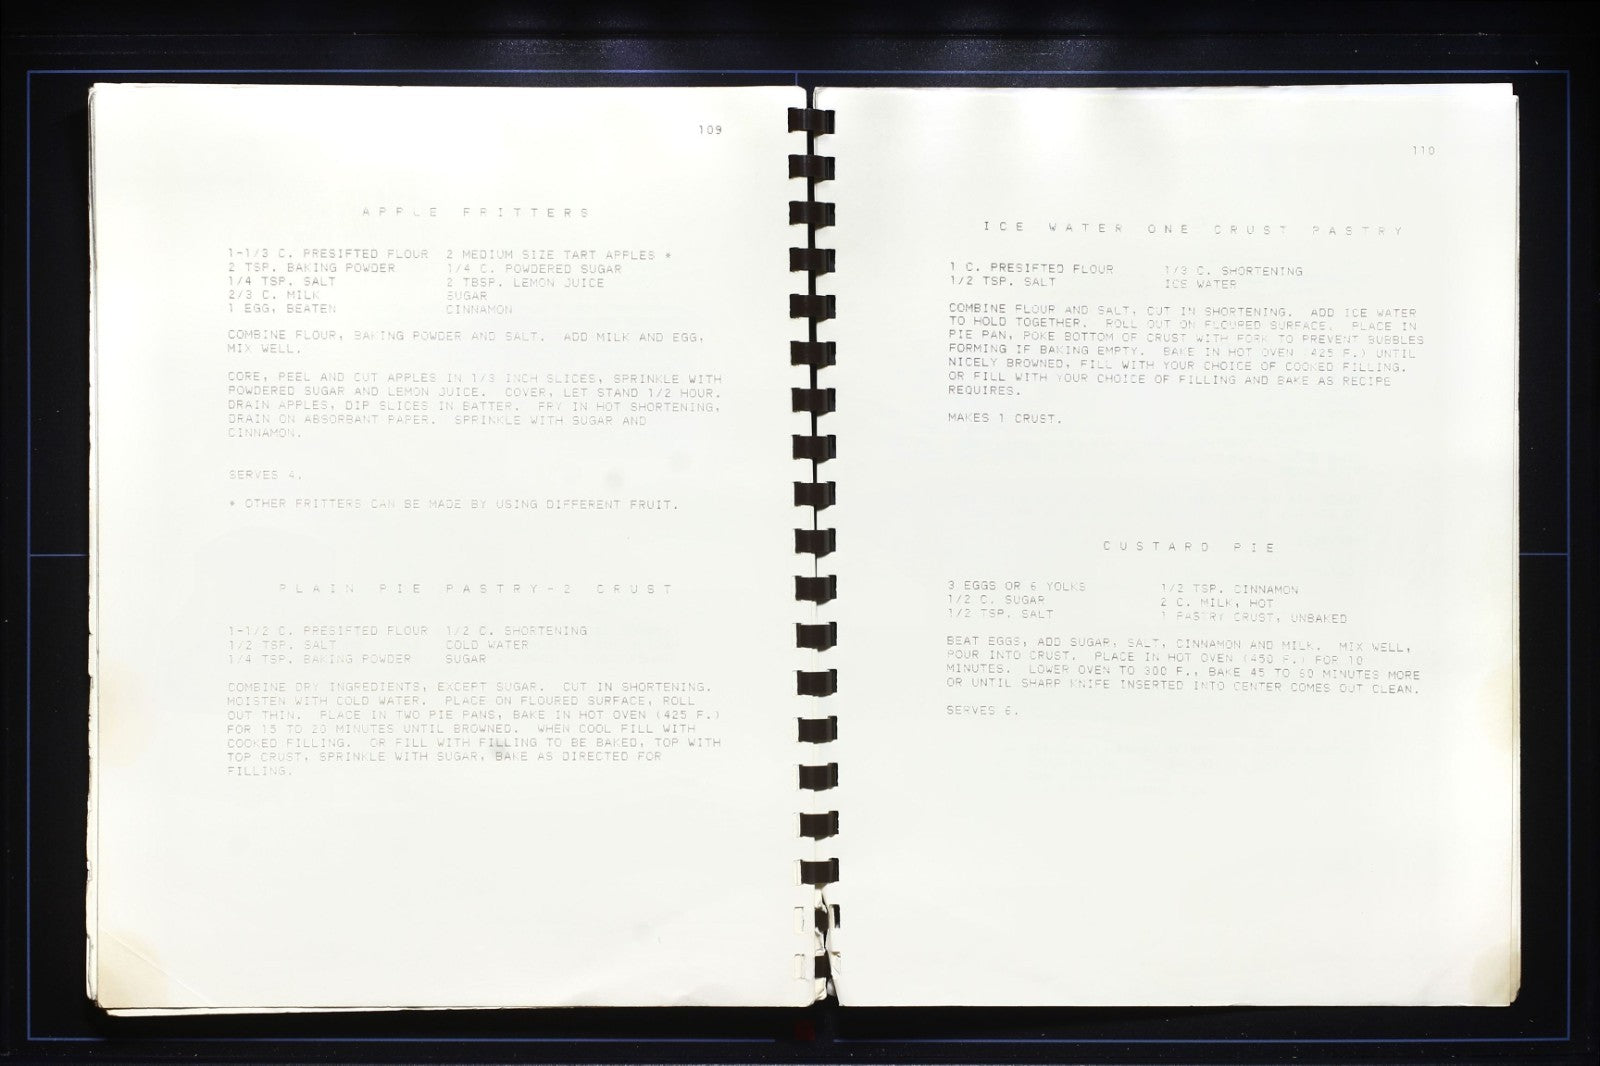 109
APPLE FRITTERS
1-1/3 C. PRESIFTED FLOUR 2 MEDIUM SIZE TART APPLES *
2 TSP. BAKING POWDER 1/4 C. POWDERED SUGAR
1/4 TSP. SALT 2 TBSP. LEMON JUICE
2/3 C. MILK SUGAR
1 EGG, BEATEN CINNAMON
COMBINE FLOUR, BAKING POWDER AND SALT. ADD MILK AND EGG,
MIX WELL.
CORE, PEEL AND CUT APPLES IN 1/3 INCH SLICES, SPRINKLE WITH
POWDERED SUGAR AND LEMON JUICE. COVER, LET STAND 1/2 HOUR.
DRAIN APPLES, DIP SLICES IN BATTER. FRY IN HOT SHORTENING,
DRAIN ON ABSORBANT PAPER. SPRINKLE WITH SUGAR AND
CINNAMON.
SERVES 4.
* OTHER FRITTERS CAN BE MADE BY USING DIFFERENT FRUIT.
PLAIN PIE PASTRY-2 CRUST
1-1/2 C. PRESIFTED FLOUR 1/2 C. SHORTENING
1/2 TSP. SALT COLD WATER
1/4 TSP. BAKING POWDER SUGAR
COMBINE DRY INGREDIENTS, EXCEPT SUGAR. CUT IN SHORTENING.
MOISTEN WITH COLD WATER. PLACE ON FLOURED SURFACE, ROLL
OUT THIN. PLACE IN TWO PIE PANS, BAKE IN HOT OVEN (425 F.)
FOR 15 TO 20 MINUTES UNTIL BROWNED. WHEN COOL FILL WITH
COOKED FILLING. OR FILL WITH FILLING TO BE BAKED, TOP WITH
TOP CRUST, SPRINKLE WITH SUGAR, BAKE AS DIRECTED FOR
FILLING.
110
ICE WATER ONE CRUST PASTRY
1 C. PRESIFTED FLOUR 1/3 C. SHORTENING
1/2 TSP. SALT ICE WATER
COMBINE FLOUR AND SALT, CUT IN SHORTENING. ADD ICE WATER
TO HOLD TOGETHER. ROLL OUT ON FLOURED SURFACE. PLACE IN
PIE PAN, POKE BOTTOM OF CRUST WITH FORK TO PREVENT BUBBLES
FORMING IF BAKING EMPTY. BAKE IN HOT OVEN (425 F.) UNTIL
NICELY BROWNED, FILL WITH YOUR CHOICE OF COOKED FILLING.
OR FILL WITH YOUR CHOICE OF FILLING AND BAKE AS RECIPE
REQUIRES.
MAKES 1 CRUST.
CUSTARD PIE
3 EGGS OR 6 YOLKS 1/2 TSP. CINNAMON
1/2 C. SUGAR 2 C. MILK, HOT
1/2 TSP. SALT 1 PASTRY CRUST, UNBAKED
BEAT EGGS, ADD SUGAR, SALT, CINNAMON AND MILK. MIX WELL,
POUR INTO CRUST. PLACE IN HOT OVEN (450 F.) FOR 10
MINUTES. LOWER OVEN TO 300 F., BAKE 45 TO 60 MINUTES MORE
OR UNTIL SHARP KNIFE INSERTED INTO CENTER COMES OUT CLEAN.
SERVES 6.